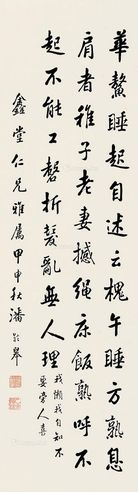 華鰲睡起自述云槐午睡方熟息
肩者稚子老妻撼绳床飯熟呼不
起不能工磬折髮亂無人理
我懶我自如不
要當人喜
鑫堂仁兄雅属甲申秋潘齡皋